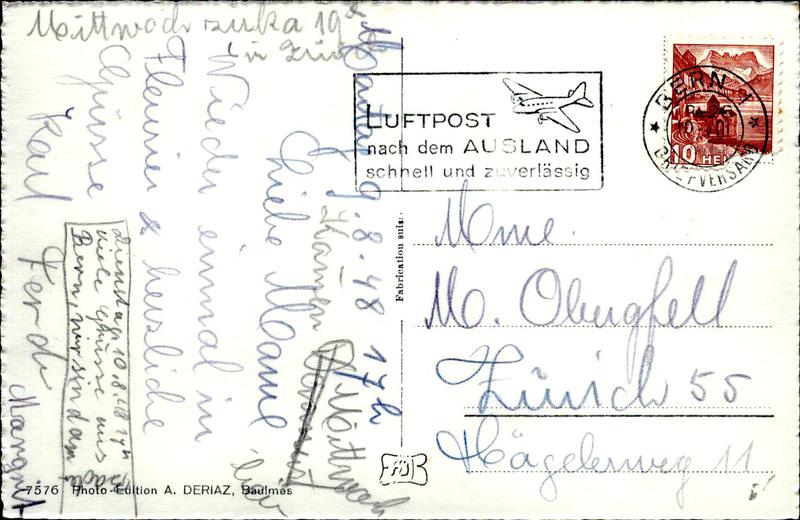 Mittwoch zuka 19
in Zürich
Montag 9.8.48 17h
Liebe Mame
Wieder einmal in
Fleurier & herzliche
Grüsse
Karl
Ferdi
Margrit
Dienstag 10.8.48
viele Grüsse aus
Bern, wir sind am
Kamen
Mittwoch
LUFTPOST
nach dem AUSLAND
schnell und zuverlässig
BERN 1
BRIEFVERSAND
10 HE
Fabrication suisse
Mme.
M. Obergfell
Zürich 55
Hägelerweg 11
7576 Photo-Edition A. DERIAZ, Baulmes